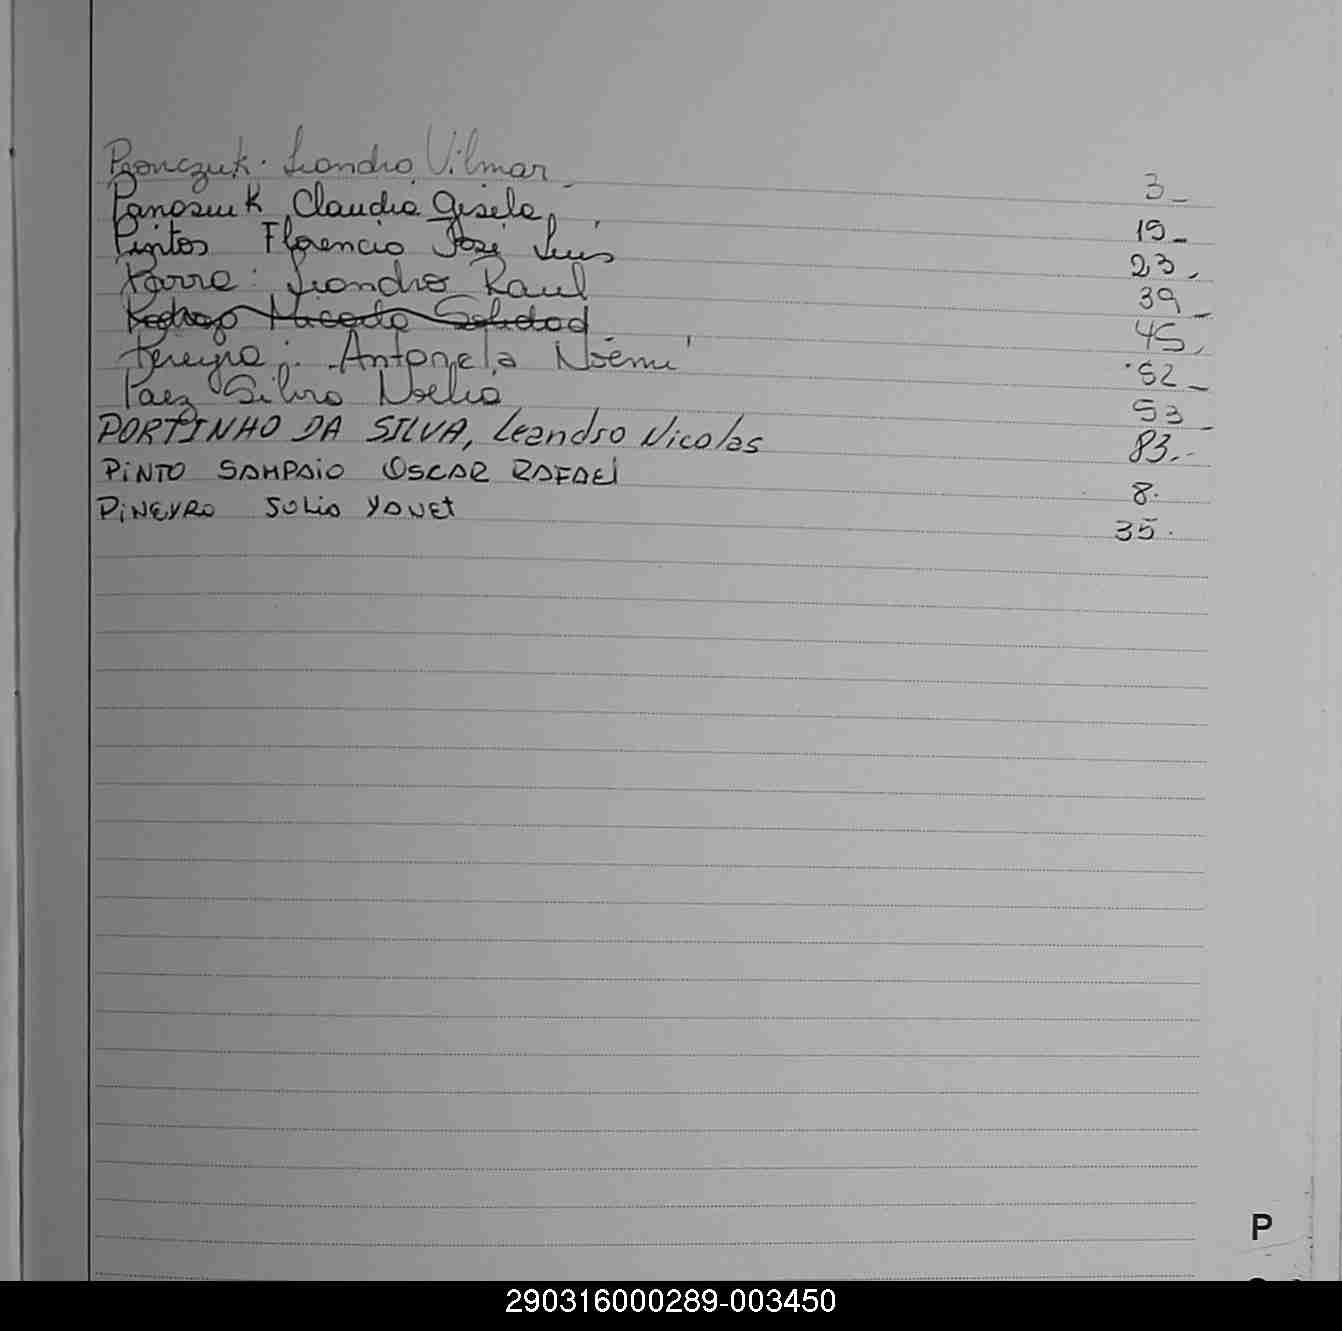 Pzonczuk. Leandro Vilmar 3_
Panasiuk Claudia Gisela, 19_
Pintos Florencio José Luis 23.
Parra: Leandro Raul 39_
Pedrozo Macarla Soledad 45,
Pereyra: Antonela Noemi 52_
Paez Silvia Noelia 53_
PORTINHO DA SILVA, Leandro Nicolas 83.-
PINTO SAMPAIO OSCAR RAFAEL 8.
PINEYRO JULIA YANET 35.
P
290316000289-003450